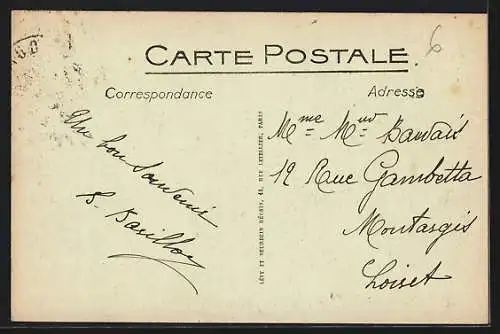 CARTE POSTALE
Correspondance
Adresse
6
Un bon Souvenir
LÉVY ET NEURDEIN RÉUNIS, 44, RUE LETELLIER, PARIS
Mme
12 Rue Gambetta
Montargis
Loiret